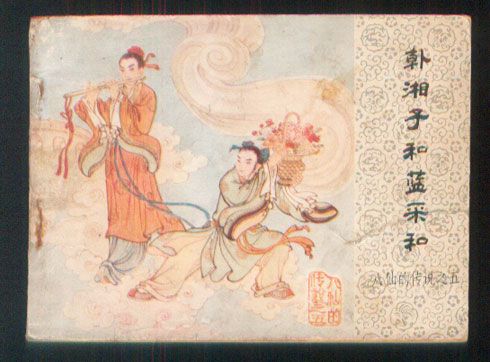 韩湘子和蓝采和
八仙的传说之五
八仙的
传说五